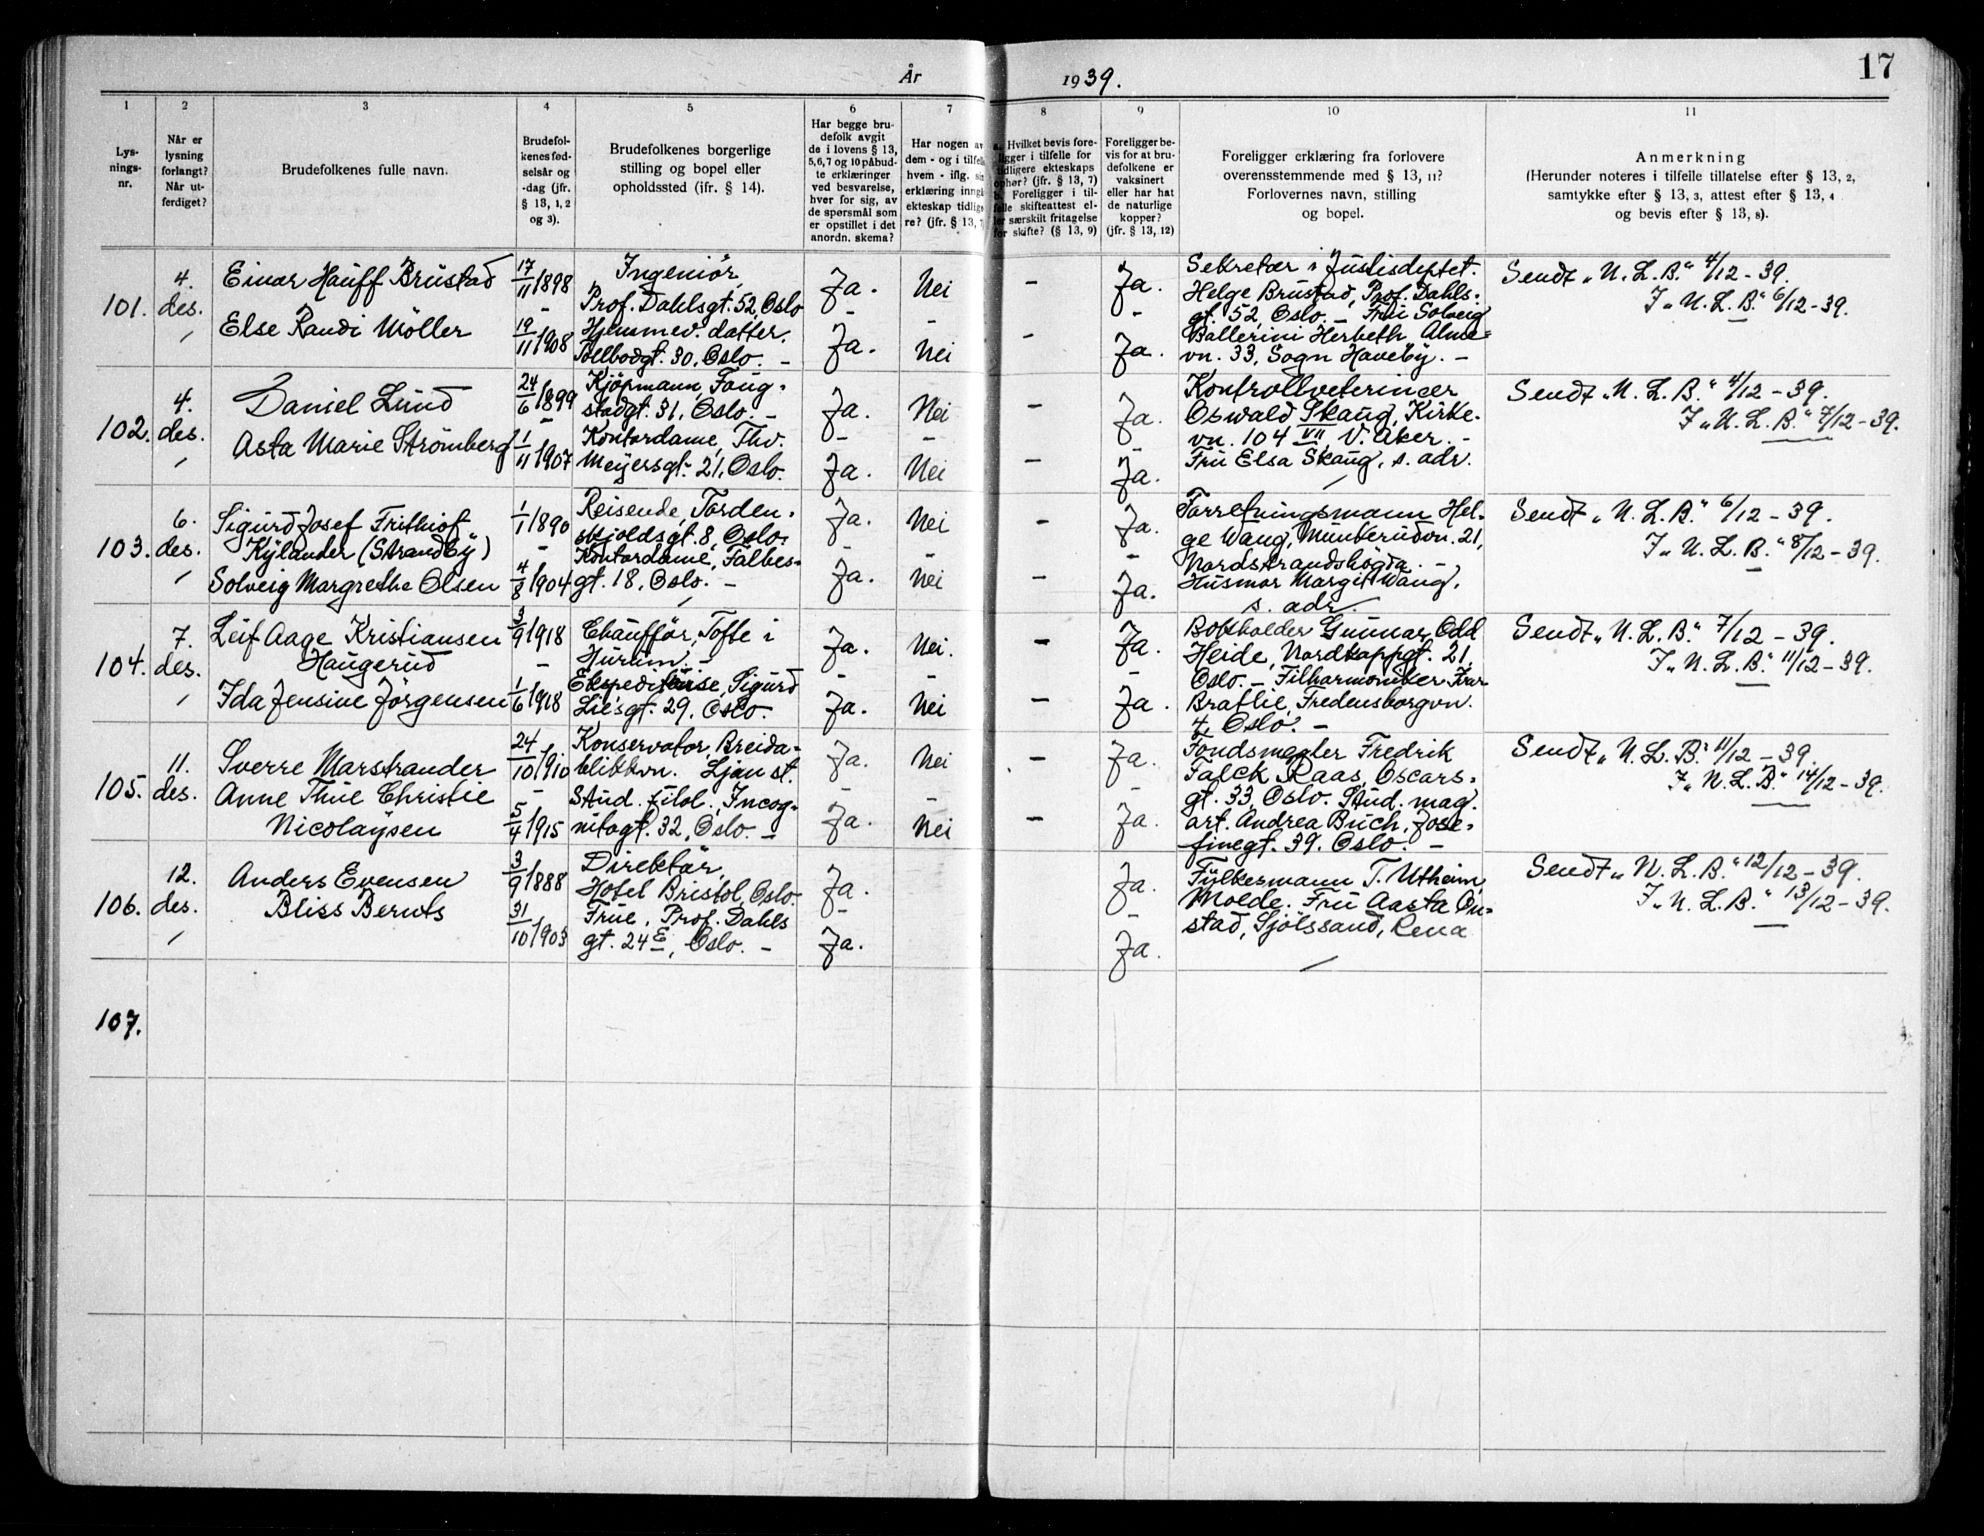 År 1939.
17
1 2 3 4 5 6 7 8 9 10 11
Lys-
nings-
nr.
Når er
lysning
forlangt?
Når ut-
ferdiget?
Brudefolkenes fulle navn.
Brudefol-
kenes fød-
selsår og
-dag (jfr.
§ 13, 1, 2
og 3).
Brudefolkenes borgerlige
stilling og bopel eller
opholdssted (jfr. § 14).
Har begge bru-
defolk avgit
de i lovens § 13,
5,6,7 og 10 påbud-
te erklæringer
ved besvarelse,
hver for sig, av
de spørsmål som
er opstillet i det
anordn. skema?
Har nogen av
dem - og i tilfelle
hvem - iflg. sin
erklæring inngå
ekteskap tidlige
re? (jfr. § 13, 7
a. Hvilket bevis fore-
ligger i tilfelle for
tidligere ekteskaps
ophør? (jfr. § 13, 7)
b. Foreligger i til-
felle skifteattest el-
ler særskilt fritagelse
for skifte? (§ 13, 9)
Foreligger be-
vis for at bru-
defolkene er
vaksinert
eller har hat
de naturlige
kopper?
(jfr. § 13, 12)
Foreligger erklæring fra forlovere
overensstemmende med § 13, 11?
Forlovernes navn, stilling
og bopel.
Anmerkning
(Herunder noteres i tilfelle tillatelse efter § 13, 2,
samtykke efter § 13, 3, attest efter § 13, 4
og bevis efter § 13, 8).
101.
4.
des.
Einar Hauff Brustad
Else Randi Möller
17/11 1898
-
19/11 1908
Ingeniör,
Prof. Dahlsgt. 52, Oslo
Hjemmev. datter,
gt. 30, Oslo. -
Ja.
-
Ja.
Nei
-
Nei
-
-
Ja.
-
Ja.
Sekretær i Justisdeptet.
Helge Brustad, Prof. Dahls-
gt. 52, Oslo. - Frü Solveig
Ballerini Herbeth, Alme-
vn. 33, Sogn Haveby. -
Sendt „N. L. B." 4/12 - 39.
I „N. L. B." 6/12 - 39.
102.
4.
des.
Daniel Lund
Asta Marie Strömberg
24/6 1899
-
1/11 1907
Kjöpmann, Faug-
stadgt. 31, Oslo. -
Kontordame, Thv.
Meyersgt. 21, Oslo.
Ja.
-
Ja.
Nei
-
Nei
-
-
Ja.
-
Ja.
Kontrollveterinær
Oswald Skaug, Kirke-
vn. 104 VII, V. Aker. -
Fru Elsa Skaug, s. adr.
Sendt „N. L. B." 4/12 - 39.
I „N. L. B." 7/12 - 39.
103.
6.
des.
Sigurd Josef Frithiof
Kylander (Strandby)
Solveig Margrethe Olsen
1/1 1890
-
4/8 1904
Reisende, Torden-
skjoldsgt. 8, Oslo.
Kontordame, Falbes-
gt. 18, Oslo. -
Ja.
-
Ja.
Nei
-
Nei
-
-
Ja.
-
Ja.
Forretningsmann Hel-
ge Wang, Munkerudvn. 21,
Nordstrandshögda. -
Husmor Margit Wang,
s. adr.
Sendt „N. L. B." 6/12 - 39.
I „N. L. B." 8/12 - 39.
104.
7.
des.
Leif Aage Kristiansen
Haugerud
Ida Jensine Jörgensen
3/9 1918
-
1/6 1918
Chaufför, Tofte i
Hurum. -
Ekspeditrise, Sigurd
Liesgt. 29, Oslo.
Ja.
-
Ja.
Nei.
-
Nei
-
-
Ja.
-
Ja.
Bokholder Gunnar Odd
Heide, Nordkappgt. 21,
Oslo. - Filharmoniker Ivar
Bratlie, Fredensborgvn.
4, Oslo. -
Sendt „N. L. B." 7/12 - 39.
I „N. L. B." 11/12 - 39.
105.
11.
des.
Sverre Marstrander
Anne Thue Christie
Nicolaysen
24/10 1910
-
5/4 1915
Konservator, Breida-
blikkvn. Ljan st.
Stud. filol., Incog-
nitogt. 32, Oslo. -
Ja.
-
Ja.
Nei
-
Nei
-
-
Ja.
-
Ja.
Fondsmegler Fredrik
Falck Raas, Oscars-
gt. 33, Oslo. Stud. mag.
art. Andrea Buch, Jose-
finegt. 39, Oslo. -
Sendt „N. L. B." 11/12 - 39.
I „N. L. B." 14/12 - 39.
106.
12.
des.
Anders Evensen
Bliss Beruls
3/9 1888
31/10 1903
Direktör,
Hotel Bristol, Oslo.
Frue, Prof. Dahls
gt. 24 E, Oslo. -
Ja.
-
Ja.
Ja.
-
Ja.
Fylkesmann T. Utheim,
Molde. Fru Aasta On-
stad, Sjölssand, Rena
Sendt „N. L. B." 12/12 - 39.
I „N. L. B." 13/12 - 39.
107.